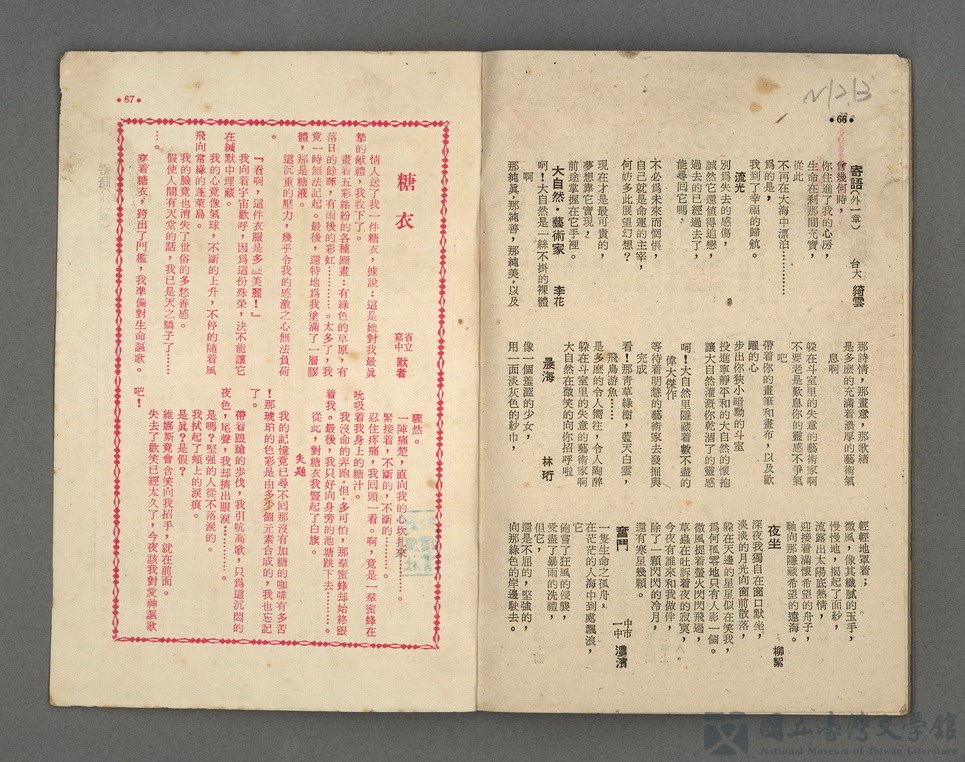 •66•
寄語(外一章) 台大 綺雲
曾幾何時,
你住進了我的心房,
生命在剎那間充實,
從此
不再在大海中漂泊……
為的是,
我到了幸福的歸航。
流光
別為失去的感傷,
誠然它還值得追戀,
過去的已經過去了,
能尋回它嗎,
不必為未來而惆悵,
自己就是命運的主宰,
何妨多此展望幻想?
現在才是最可貴的,
夢想靠它實現,
前途掌握在它手裡。
大自然·藝術家 李花
啊!大自然是一絲不掛的裸體
啊
那純眞,那純善,那純美,以及
那詩情,那畫意,那歌緒
是多麽的充滿着濃厚的藝術氣
息啊
躱在斗室里的失意的藝術家啊
不要老是歎息你的靈感不爭氣
吧
帶着你的畫筆和畫布,以及歡
躍的心
步出你狹小暗黝的斗室
投進寧靜平和的大自然的懷抱
讓大自然灌溉你乾涸了的靈感
呵!大自然里隱藏着數不盡的
偉大傑作
等待着明慧的藝術家去發掘與
完成
看!那靑草綠樹,藍天白雲,
飛鳥游魚……
是多麽的令人嚮往,令人陶醉
躱在斗室里的失意的藝術家啊
大自然在微笑的向你招呼啦
晨海 林珩
像一個羞澀的少女,
用一面淡灰色的紗巾,
輕輕地罩着;
微風,像其纖膩的玉手,
慢慢地,揭起了面紗,
流露出太陽底熱情,
迎接着滿懷希望的舟子,
馳向那隱藏希望的遠海。
夜坐 柳絮
深夜我獨自在窗口默坐,
淡淡的月光向窗前散落,
躱在天邊的星星似在笑我,
為何孤零地只有人影一個。
微風提着螢火閃閃飛過,
草蟲在吐訴着夜的寂寞,
今夜有誰來和我做伴,
除了一顆閃閃的冷月,
還有寒星幾顆。
奮鬥 中市一中 瀟濱
一隻生命之孤舟,
在茫茫的人海中到處飄浪,
它
飽嘗了狂風的侵襲,
受盡了暴雨的洗禮,
但它,
還是不屈的,堅強的,
向那綠色的岸邊駛去。
•67•
糖衣
省立嘉中 默者
情人送了我一件糖衣,據說:這是她對我最眞
摯的獻禮,我收下了。
畫着五彩繽紛的各種圖畫:有綠色的草原,有
落日的餘暉,有雨後的彩虹…………太多了,我
竟一時無法記起。最後,還特地為我塗滿了一層膠
體,那是糖液。
這沉重的壓力,幾乎令我的感激之心無法負荷
。
『看啊,這件衣服是多麽美麗!』
我向着宇宙歡呼,因為這份殊榮,決不能讓它
在緘默中埋藏。
我的心竟像氣球,不斷的上升,不停的隨着風
飛向常緣的蓬萊島。
我的臉竟也消失了世俗的多愁善感。
假使人間有天堂的話,我已是天之驕子了……
…。
穿着糖衣,跨出了門檻,我準備對生命謳歌。
驟然。
一陣痛楚,直向我的心坎扎來…………。
緊接着,不斷的,不斷的……
忍住疼痛,我回頭一看。啊,竟是一羣蜜蜂在
吮吸着我身上的糖汁。
我沒命的奔跑,但,多可怕,那羣蜜蜂却始終跟
着我。最後,我只好向身旁的池塘跳下去……。
從此,對糖衣我豎起了白旗。
失題
我的記憶竟已尋不回那沒有加糖的咖啡有多苦
!那琥珀的色彩是由多少個元素合成的,我也忘記
了。
帶着踉蹌的步伐,我引吭高歌,只為這沉悶的
夜色,尾聲,我却擠出眼淚……。
是嗎?堅强的人從不落淚的。
我拭起了頰上的淚痕。
是眞?是假?
維娜斯竟會含笑向我招手,就在前面。
失去了歡笑已經太久了,今夜該我對愛神謳歌
吧!
國立臺灣文學館
National Museum of Taiwan Literature